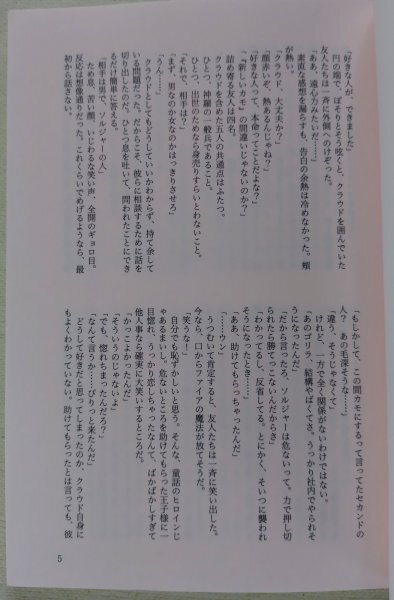 「好きな人が、できました」
円の端で、ぼそりとそう呟くと、クラウドを囲んでいた
友人たちは一斉に外側へのけぞった。
「ああ、遠い力みたいだ……」
素直な感想を漏らすも、告白の余熱は冷めなかった。頬
が熱い。
「クラウド、大丈夫か?」
「顔赤いぞ、熱あるんじゃね?」
「好きな人って、本命ってことだよな?」
「『新しいカモ』の間違いじゃないのか?」
詰め寄る友人は四名。
クラウドを含めた五人の共通点はふたつ。
ひとつ、神羅の一般兵であること。
ひとつ、出世のためなら身売りすらいとわないこと。
「それで、相手は?」
「まず、男なのか女なのかはっきりさせろ」
「うん……」
クラウドとしてもどうしていいかわからず、持て余して
いる問題だった。だからこそ、彼らに相談するために話を
切り出したのだ。ひとつ息を吐いて、問われたことにでき
るだけ簡単に答える。
「相手は男で、ソルジャーの人」
ため息、苦い顔、いじわるな笑い声、全開のギョロ目。
反応は想像通りだった。これくらいでめげるようなら、最
初から話さない。
「もしかして、この間カモにするって言ってたセカンドの
人? あの毛深そうな……」
「違う、そうじゃなくて」
けれど、一方で全く関係がないわけではない。
「あのひと、今、結構やばくてさ。うっかり社内でやられそ
うになったんだ」
「だから言ったろ、ソルジャーは危ないって。力で押し切
られたら勝てっこないんだからさ」
「わかってるし、反省してる。とにかく、そいつに襲われ
そうになったとき……」
「ああ、助けてもらっちゃったんだ」
「……ウン」
うつむいて肯定すると、友人たちは一斉に笑い出した。
今なら、口からファイアの魔法が放てそうだ。
「笑うな!」
自分でも恥ずかしいと思う。そんな、童話のヒロインじ
ゃあるまいし。危ないところを助けてもらった王子様に一
目惚れ、うっかり恋しちゃったなんて、ばかばかしすぎて
他人事なら確実に大笑いするところだ。
「かっこよかったんだ」
「そういうのじゃないよ」
「でも、惚れちまったんだろ?」
「なんて言うか……びりっと来たんだ」
どうして好きだと思ってしまったのか、クラウド自身に
もよくわかっていない。助けてもらったとは言っても、彼
5